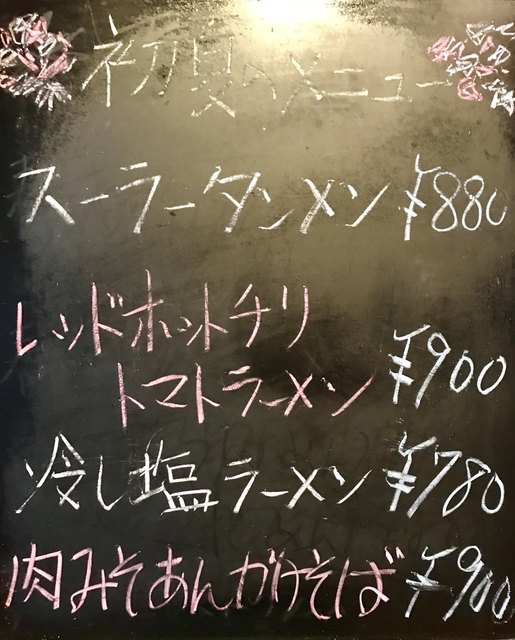 初夏のメニュー
スーラータンメン ¥880
レッドホットチリ
トマトラーメン ¥900
冷し塩ラーメン ¥780
肉みそあんかけそば ¥900